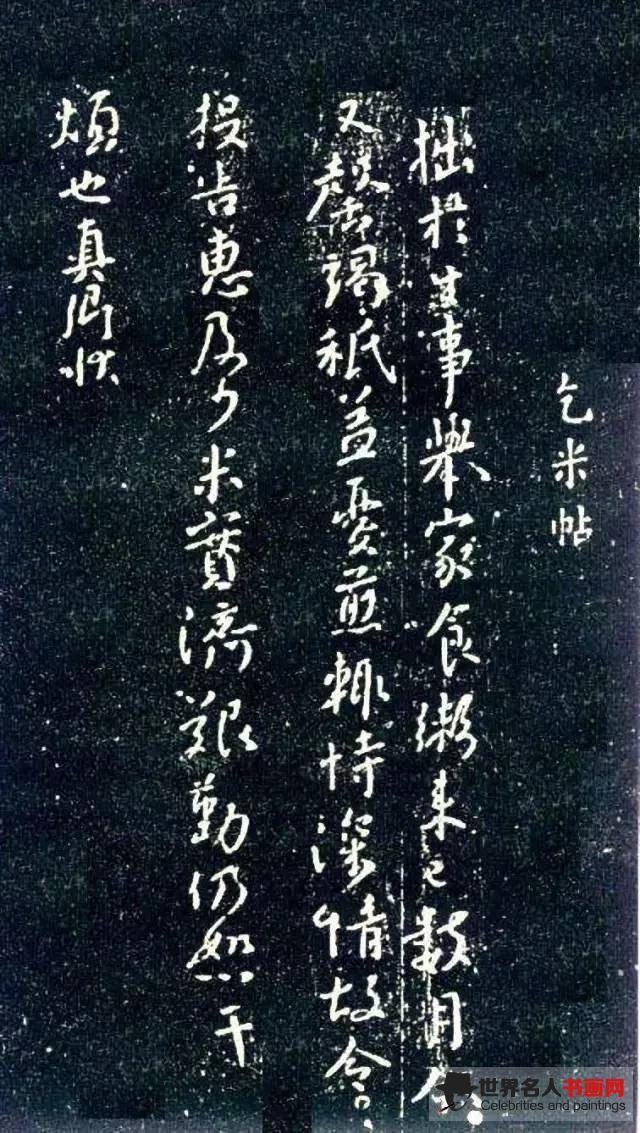 乞米帖
拙於生事舉家食粥来已數月今
又罄竭秪益憂煎輒恃深情故令
投告惠及少米實濟艱勤仍恕干
煩也真卿狀
世界名人书画网
Celebrities and paintings